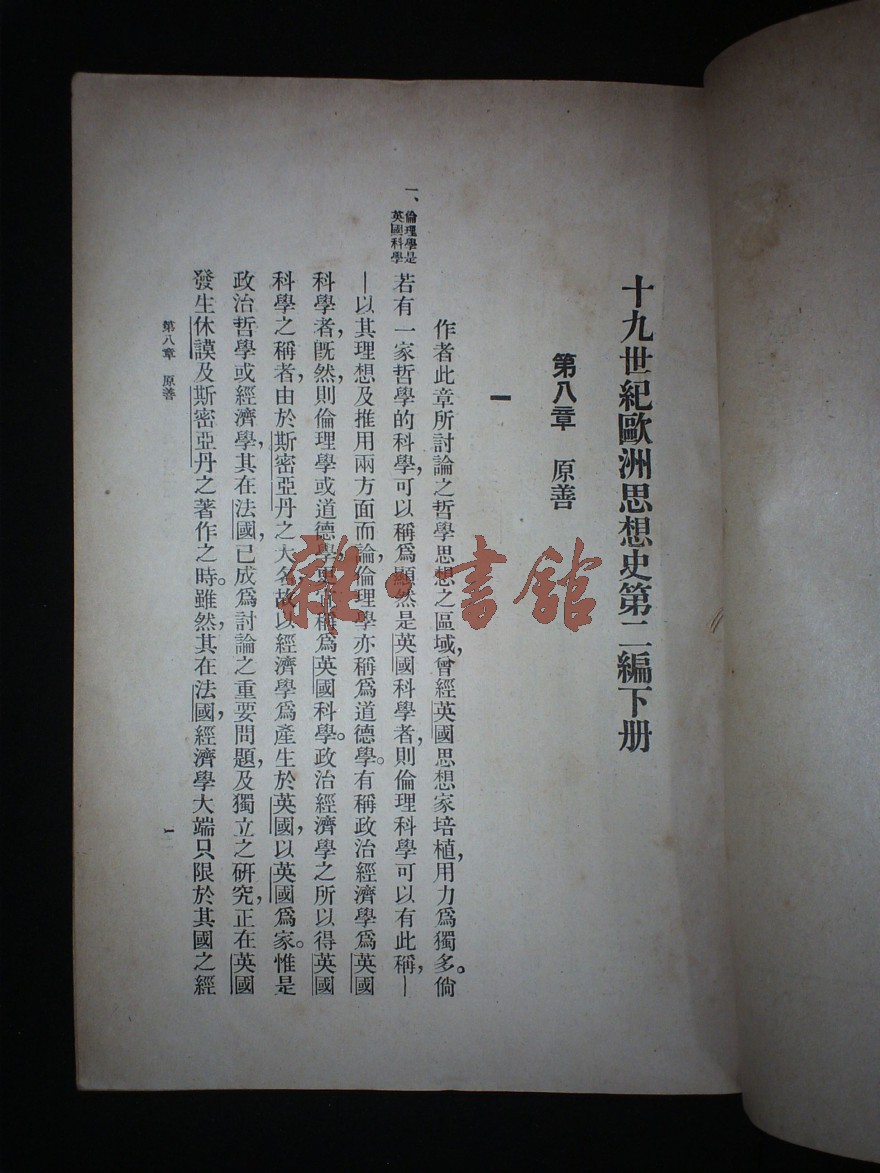 十九世紀歐洲思想史第二編下册
第八章　原善
一
作者此章所討論之哲學思想之區域，曾經英國思想家培植，用力爲獨多。倘
一、倫理學是
英國科學
若有一家哲學的科學，可以稱爲顯然是英國科學者，則倫理科學可以有此稱，—
—以其理想及推用兩方面而論，倫理學亦稱爲道德學。有稱政治經濟學爲英國
科學者，既然，則倫理學或道德學，更宜稱爲英國科學。政治經濟學之所以得英國
科學之稱者，由於斯密亞丹之大名，故以經濟學爲產生於英國，以英國爲家。惟是
政治哲學或經濟學，其在法國，已成爲討論之重要問題，及獨立之研究，正在英國
發生休謨及斯密亞丹之著作之時。雖然，其在法國，經濟學大端只限於其國之經
第八章　原善
一
雜·書館